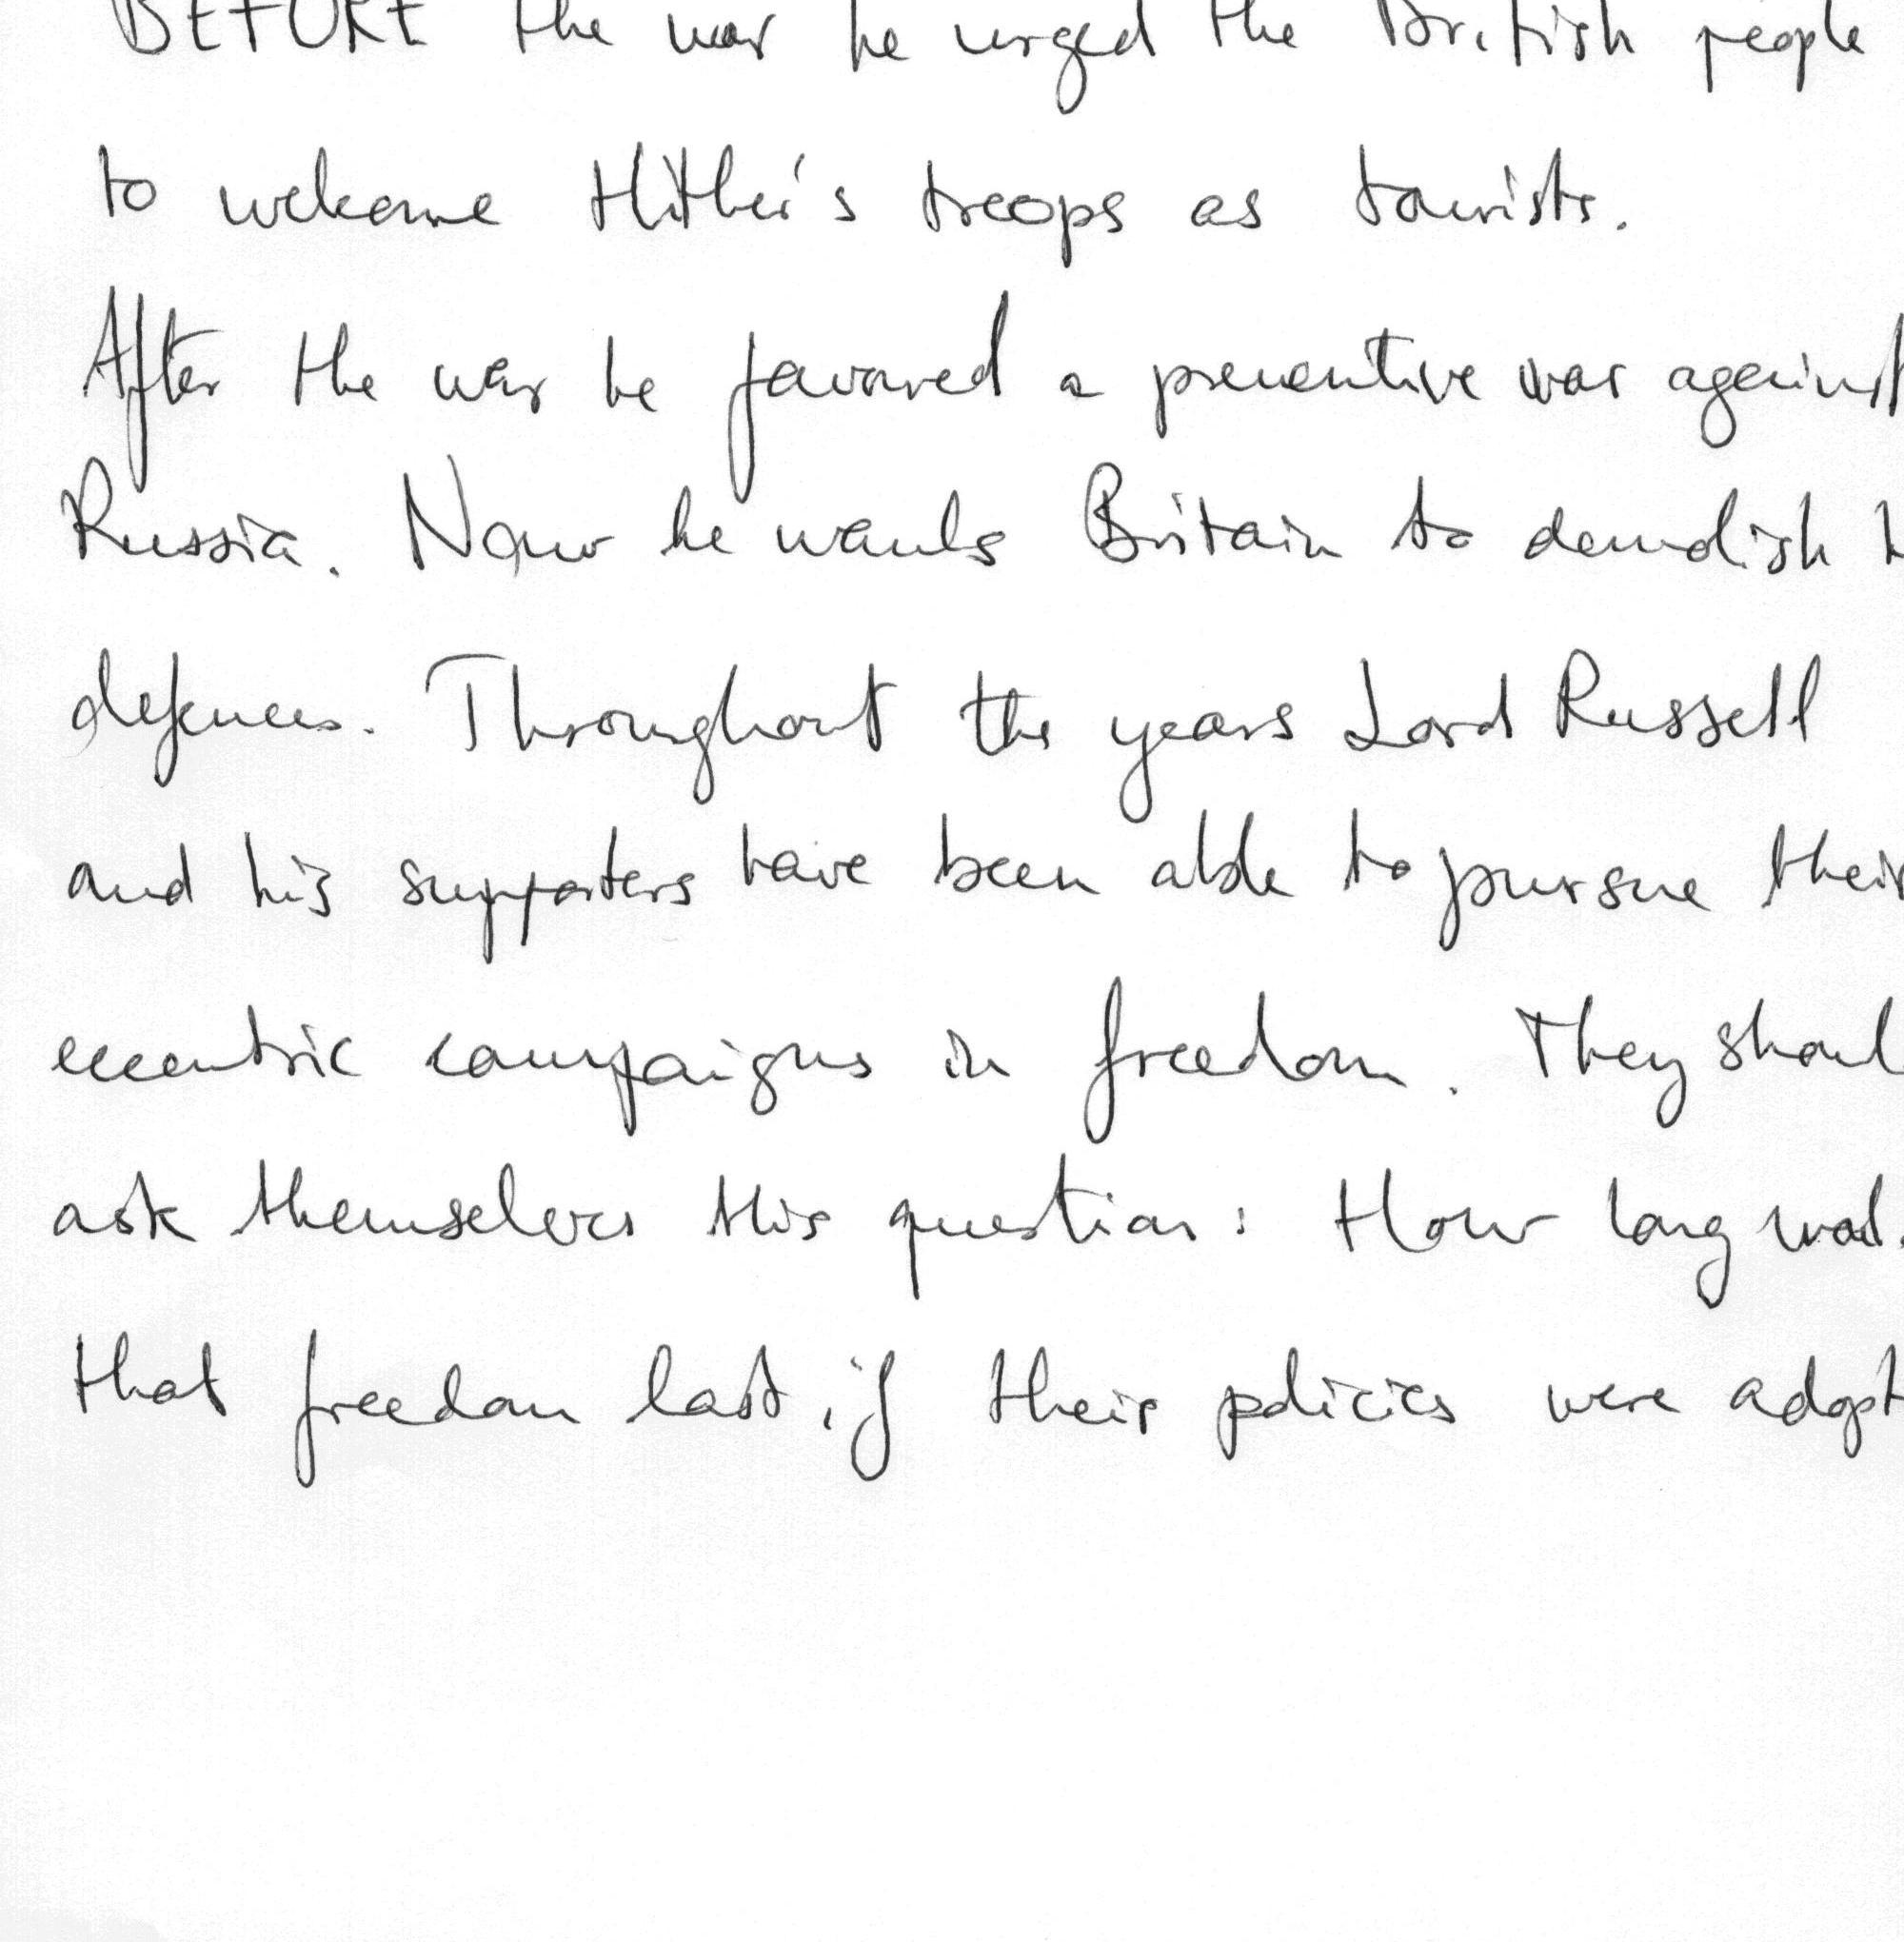 BEFORE the war he urged the British people
to welcome Hitler's troops as tourists.
After the war he favoured a preventive war against
Russia. Now he wants Britain to demolish
defences. Throughout the years Lord Russell
and his supporters have been able to pursue their
eccentric campaigns in freedom. They
ask themselves this question: How long
that freedom last, if their policies were